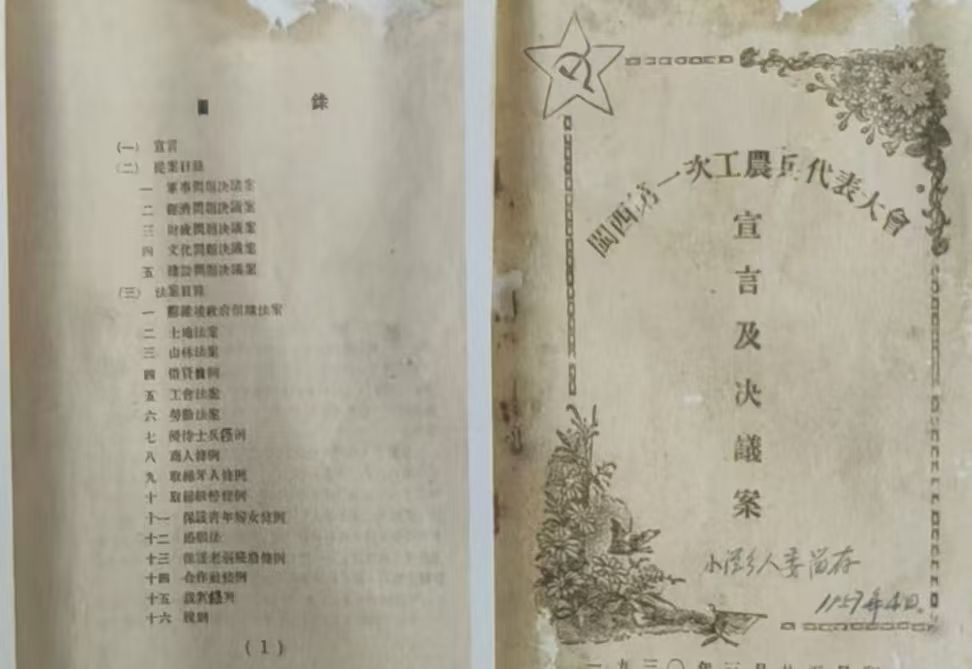 目 錄
(一) 宣言
(二) 提案目錄
一 軍事問題決議案
二 經濟問題決議案
三 財政問題決議案
四 文化問題決議案
五 建設問題決議案
(三) 法案目錄
一 組織法案
二 土地法案
三 山林法案
四 借貸條例
五 工會法案
六 勞動法案
七 優待士兵條例
八 商人條例
九 取締牙人條例
十 取締條例
十一 保護青年婦女條例
十二 婚姻法
十三 保護老弱殘廢條例
十四 合作社條例
十五 裁判條例
十六 稅則
(1)
閩西第一次工農兵代表大會
宣言及决議案
人委留存
一九三〇年三月